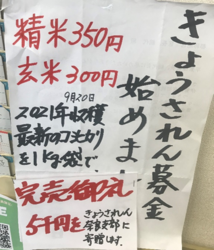 きょうされん募金
始めま
精米350円
玄米300円
9月20日
2021年収穫
最新のコシヒカリ
を1kg袋で
完売御礼
5千円を
きょうされん
奈良支部に
寄贈します。